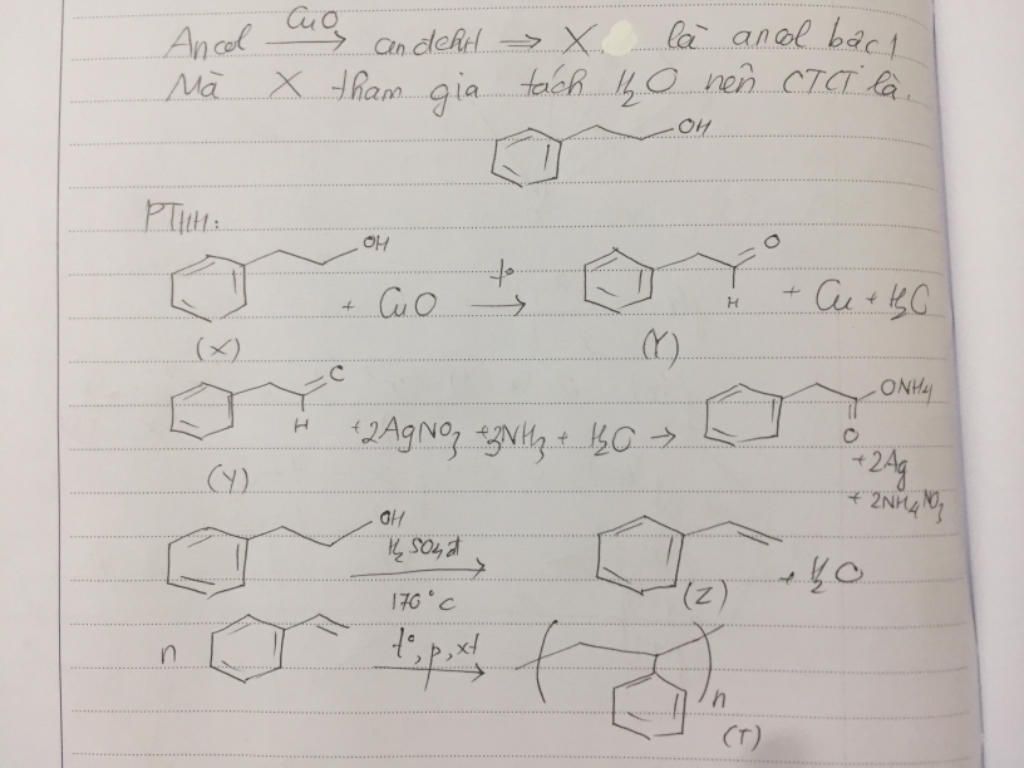 Ancol CuO → anđehit ⇒ X là ancol bậc 1
Mà X tham gia tách H₂O nên CTCT là.
OH
PTHH:
OH + CuO t° → O H + Cu + H₂O
(X) (Y)
O H + 2AgNO₃ + 3NH₃ + H₂O → ONH₄ O
(Y) + 2Ag
+ 2NH₄NO₃
OH H₂SO₄ đ → + H₂O
170°C (Z)
n t°, p, xt → ( )n
(T)